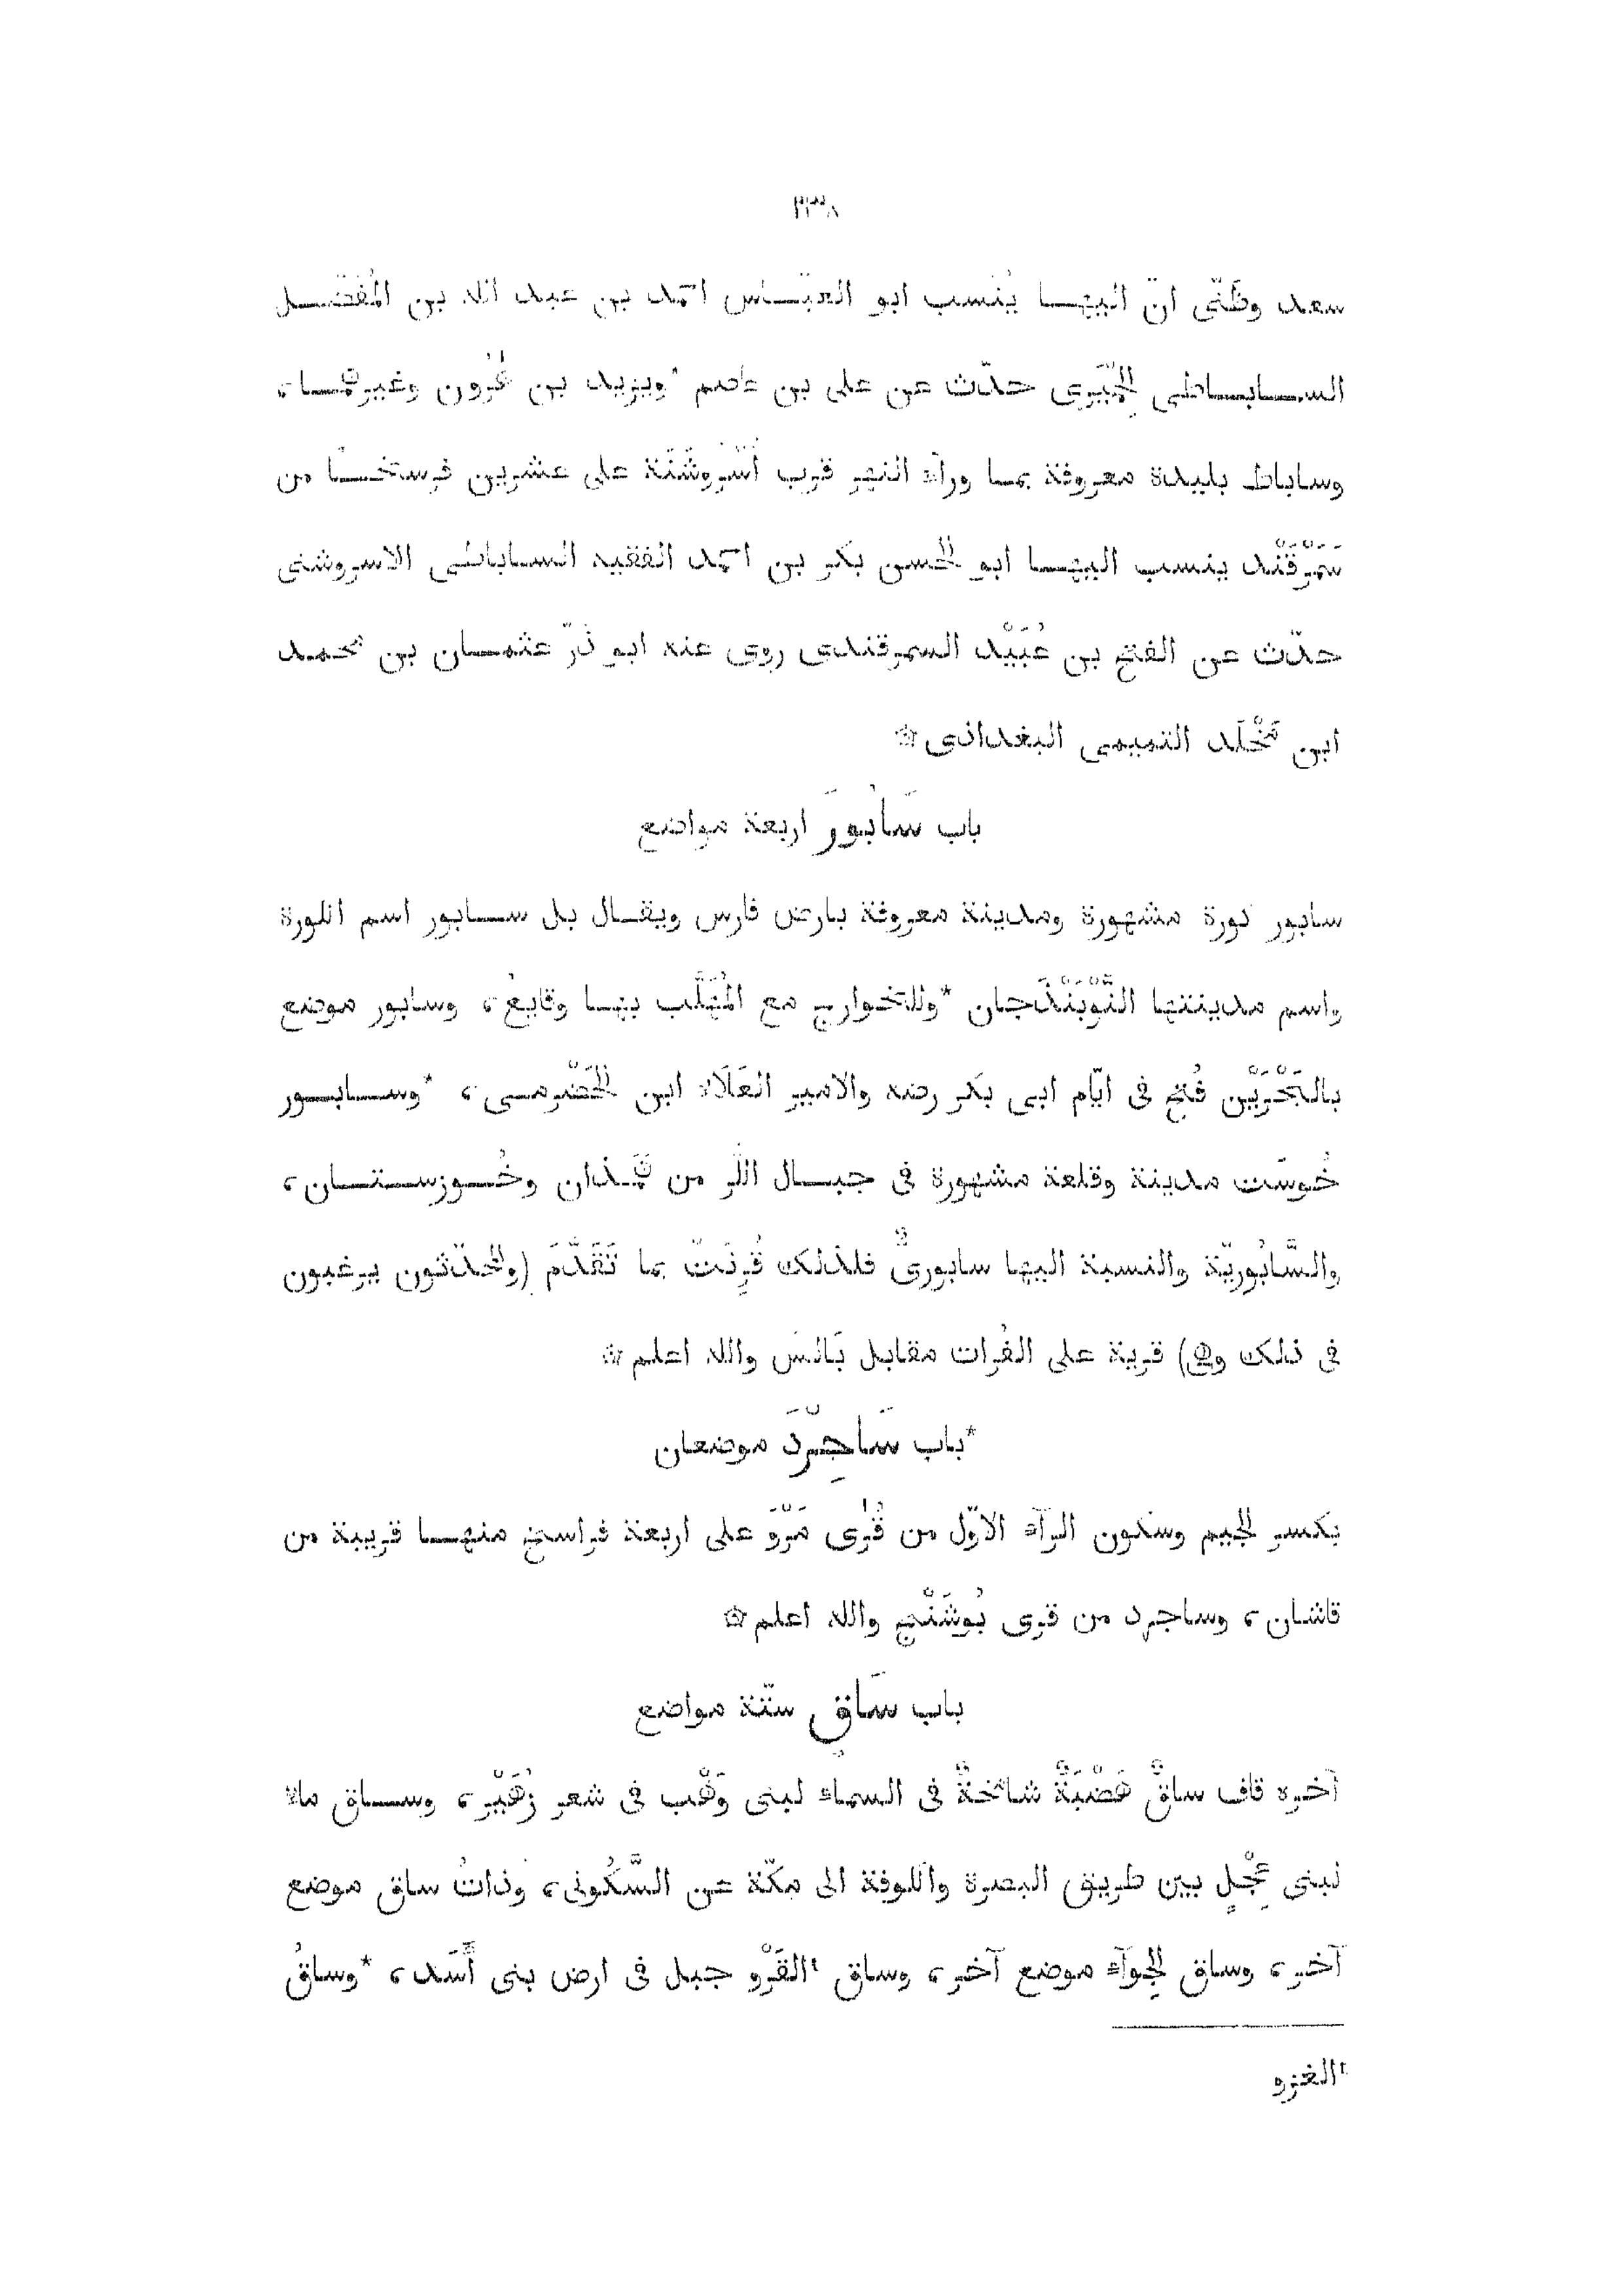 ٢٣٨
سعد وظَنّى انّ اليهـا يُنْسب ابو العبّـاس احمد بن عبد الله بن المُفَضّـل
السـابـاطى الحِمْيَرى حدّث عن على بن عاصم *ويزيد بن هٰرُون وغيرهمـا،
وساباط بليدة معروفة بمـا ورآء النهر قرب أُسْرُوشَنَة على عشرين فرسخـًا من
سَمَرْقَنْد ينسب اليهـا ابو الحسن بكر بن احمد الفقيه السـاباطى الاسروشنى
حدّث عن الفتح بن عُبَيْد السمرقندى روى عنه ابو ذرّ عثمـان بن محمـد
ابن مَخْلَد التميمى البغداذى ۞
باب سَابُورَ اربعة مواضع
سابور كورة مشهورة ومدينة معروفة بارض فارس ويقـال بل سـابور اسم الكورة
واسم مدينتها النُّوْبَنْذَجان *وللخوارج مع المُهَلَّب بهـا وقايعُ، وسابور موضع
بالبَحْرَيْن فُتح فى ايّام ابى بكر رضه والامير العَلَآء ابن الحَضْرمـى، *وسـابـور
خُوسَت مدينة وقلعة مشهورة فى جبـال اللُّر من همـذان وخُـوزستـان،
والسَّابُوريّة والنسبة اليها سابورىٌّ فلذلك قُرِنَتْ بما تَقَدَّمَ (والمحدّثون يرغبون
فى ذلك وهى) قرية على الفُرات مقابل بَالِسَ والله اعلم ۞
*باب سَاجِرْدَ موضعان
بكسر الجيم وسكون الرآء الاوّل من قُرٰى مَرْوَ على اربعة فراسخ منهـا قريبة من
قاشان، وساجرد من قرى بُوشَنْج والله اعلم ۞
باب سَاقٍ ستّة مواضع
آخره قاف ساقٌ هَضْبَةٌ شامخةٌ فى السمآء لبنى وَهْب فى شعر زُهَيْر، وسـاق مآء
لبنى عِجْلٍ بين طريق البصرة والكوفة الى مكّة عن السَّكُونى، وذاتُ ساق موضع
آخر، وساق الجِوآء موضع آخر، وساق ¹القَرْو جبل فى ارض بنى أَسَد، *وساقُ
¹الغزو